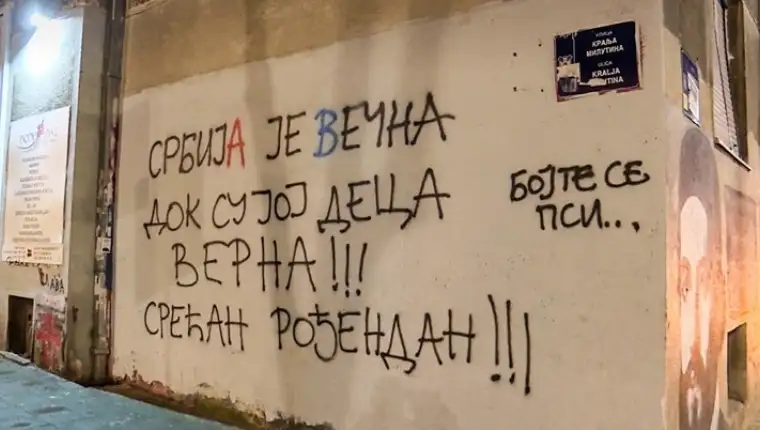 СРБИЈА ЈЕ ВЕЧНА
ДОК СУ ЈОЈ ДЕЦА
ВЕРНА!!!
СРЕЋАН РОЂЕНДАН!!!
БОЈТЕ СЕ
ПСИ...
УЛИЦА
КРАЉА
МИЛУТИНА
ULICA
KRALJA